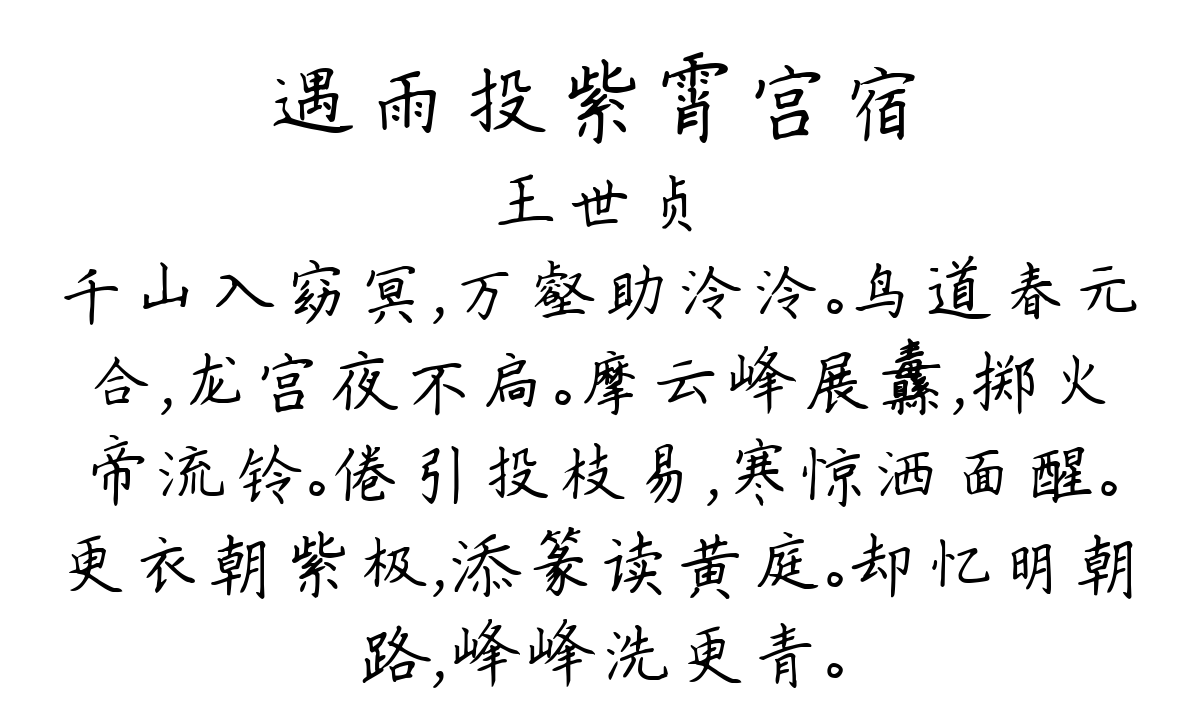 遇雨投紫霄宫宿
王世贞
千山入窈冥,万壑助泠泠。鸟道春元
合,龙宫夜不扃。摩云峰展纛,掷火
帝流铃。倦引投枝易,寒惊洒面醒。
更衣朝紫极,添篆读黄庭。却忆明朝
路,峰峰洗更青。